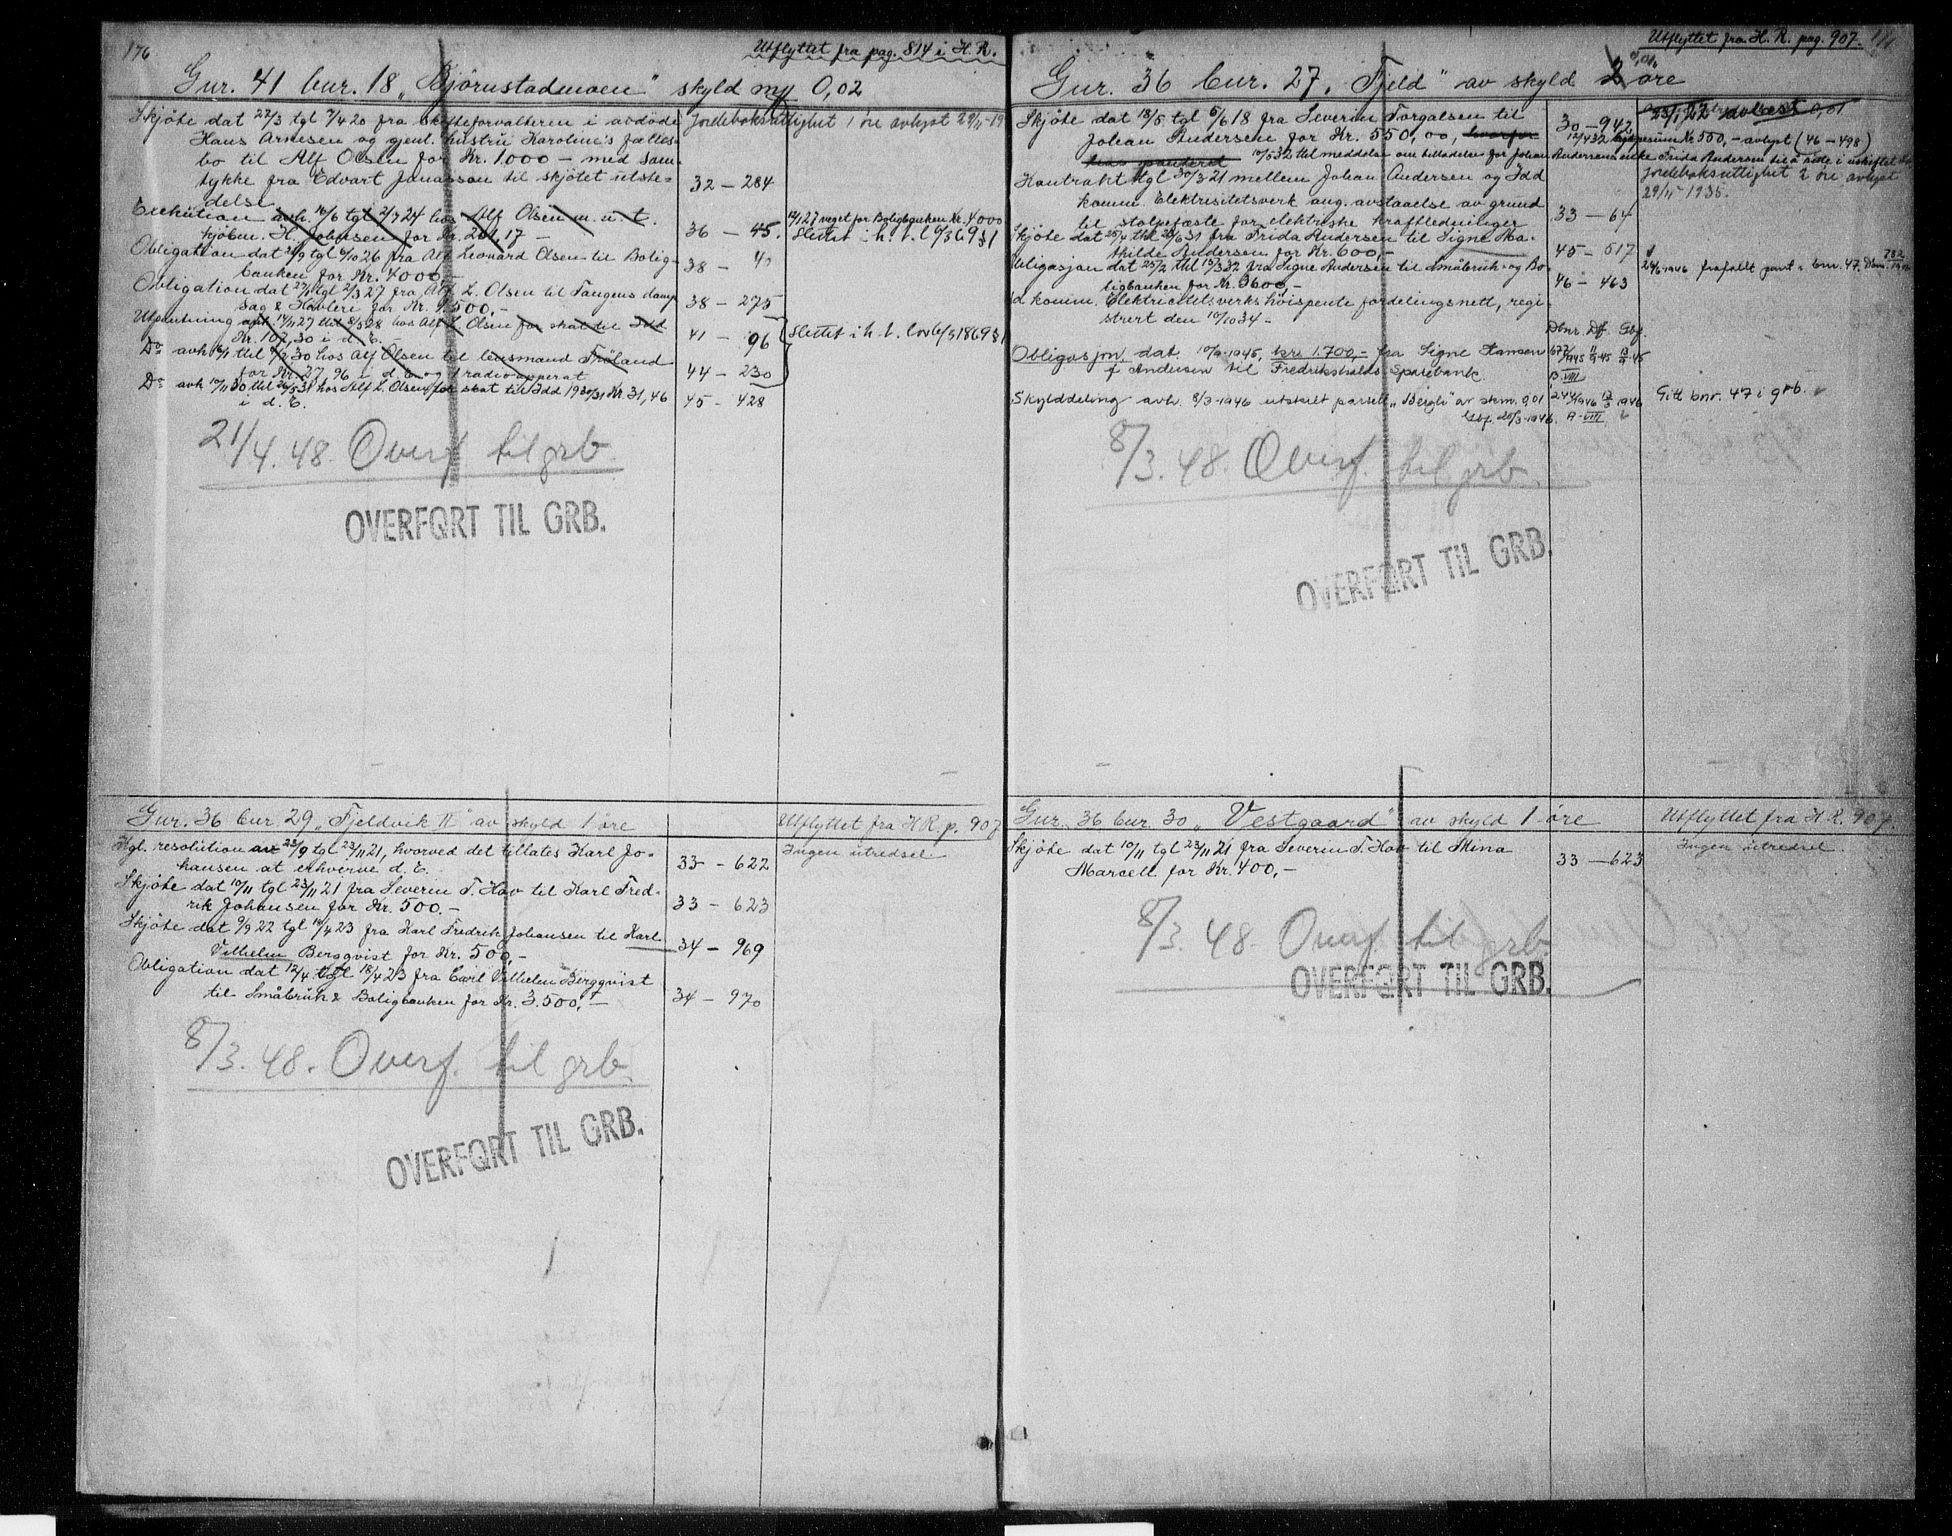 176
Utflyttet fra pag. 814 i H. R.
Gnr. 41 bnr. 18 „Bjørnstadmoen" skyld my 0,02
Skjøte dat 22/3 tgl 7/4 20 fra skifteforvalteren i avdøde
Hans Arnesen og gjenl. hustru Karoline's fælles-
bo til Alf Olsen for Kr. 1.000 – med sam-
tykke fra Edvart Jonasson til skjøtet utste-
delse
32 – 284
Jordeboksrettighet 1 øre avløst
Execution avh. 16/6 tgl 2/7 24 hos Alf Olsen m. u. t.
kjøbm. H. Johnsen for Kr. 201,17 –
36 – 45.
veget for Boligbanken Kr. 4000
Slettet i h. t. l
Obligation dat tgl 6/10 26 fra Alf Leonard Olsen til Bolig-
banken for Kr. 4000 –
38 –
Obligation dat tgl 2/3 27 fra Alf L. Olsen til Tangens damp
sag & Høvleri for Kr. 1.500,–
38 – 275
Utpantning avh 14/11 27 ttl 8/3 28 hos Alf L Olsen for skat til Idd
Kr. 107,30 i d. E. –
41 – 96
Slettet i h. t. lov
Do avh ttl 30 hos Alf Olsen til lensmand Frøland
for Kr. 27,96 i d. E. og 1 radioapparat
44 – 230
Do avh 10/11 30 ttl 26/5 31 hos Alf L. Olsen for skat til Idd 1930/31 Kr. 31,46
i d. E.
45 – 428
21/4. 48. Overf til grb.
OVERFØRT TIL GRB.
Gnr. 36 bnr 29 „Fjeldvik II" av skyld 1 øre
Utflyttet fra H R. p. 907
Kgl. resolution av 23/9 tgl 23/11 21, hvorved det tillates Karl Jo-
hansen at erhverve d. E.
33 – 622
Ingen utredsel
Skjøte dat 10/11 tgl 23/11 21 fra Severin T. Hov til Karl Fred-
rik Johansen for Kr. 500.–
33 – 623
Skjøte dat 9/9 22 tgl 14/4 23 fra Karl Fredrik Johansen til Karl
Vilhelm Bergqvist for Kr. 500,–
34 – 969
Obligation dat 12/4 tgl 18/4 23 fra Carl Vilhelm Bergqvist
til Småbruk & Boligbanken for Kr. 3.500,–
34 – 970
8/3. 48. Overf. til grb.
OVERFØRT TIL GRB.
Utflyttet fra H. R. pag. 907.
Gnr. 36 bnr. 27. „Fjeld" av skyld 2 øre
Skjøte dat 18/5 tgl 5/6 18 fra Severin Torgalsen til
Johan Andersene for Kr. 550,00, hvorfor
hus panderet
30 – 942
Kr 500,– avløst (46 – 498)
10/5 32 ttl meddelse om tilladelse for Johan Andersens enke Frida Andersen til å sitte i uskiftet bo
Kontrakt tgl 30/3 21 mellem Johan Andersen og Idd
komm. Elektrisitetsverk ang. avstaaelse av grund
til stolpefæste for elektriske kraftledninger
33 – 64
Jordeboksrettighet 2 øre avløst
29/11 1935.
Skjøte dat 25/4 ttl 31 fra Frida Andersen til Signe Ma-
thilde Andersen for Kr. 600,–
45 – 517
Obligasjon dat 25/2 ttl 15/3 32 fra Signe Andersen til Småbruk- og Bo-
ligbanken for Kr. 3600,–
46 – 463
24/6 1946 frafallt pant i bnr 47. Dbnr.
Idd komm. Elektricitetsverks høispente fordelingsnett, regi-
strert den 10/10 34 –
Dbnr. Df. Gbf.
Obligasjon, dat. 10/9-1945, kr. 1.700,– fra Signe Hansen
f. Andersen til Fredrikshalds Sparebank.
B VIII
Skylddeling avh. 8/3-1946 utskilt parsell „Bergli" av skm. 0,01
Gitt bnr. 47 i grb.
8/3. 48. Overf. til grb.
OVERFØRT TIL GRB.
Gnr. 36 bnr 30 „Vestgaard" av skyld 1 øre
Utflyttet fra H. R. 907.
Skjøte dat 10/11 tgl 23/11 21 fra Severin T. Hov til Mina
Marcell for Kr. 400,–
33 – 623
Ingen utredsel
8/3. 48. Overf. til grb.
OVERFØRT TIL GRB.